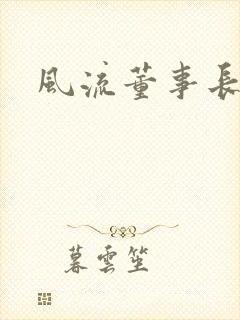 風流董事長
暮雲笙